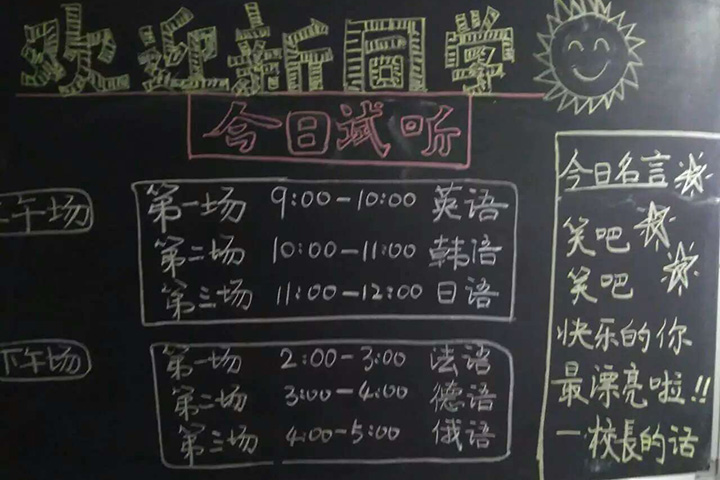 欢迎新同学
今日试听
上午场
第一场 9:00-10:00 英语
第二场 10:00-11:00 韩语
第三场 11:00-12:00 日语
下午场
第一场 2:00-3:00 法语
第二场 3:00-4:00 德语
第三场 4:00-5:00 俄语
今日名言
笑吧
笑吧
快乐的你
最漂亮啦!!
—校長的话